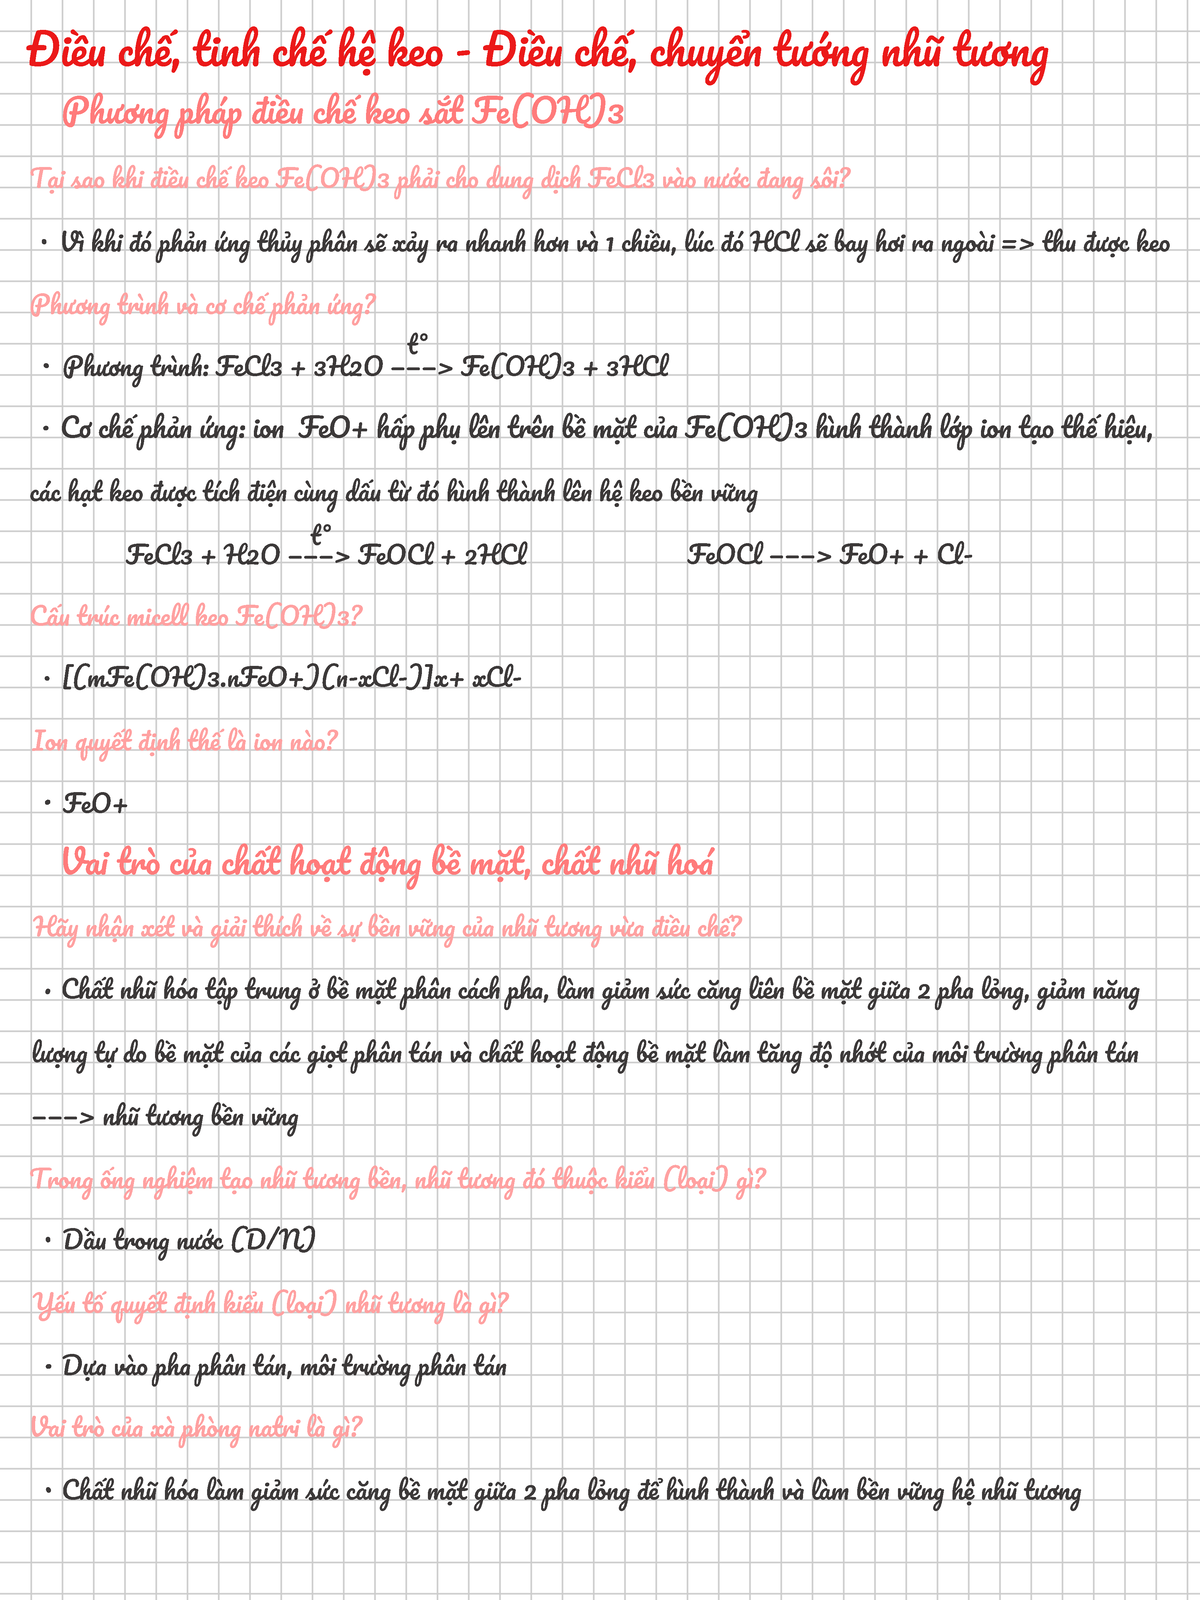 Điều chế, tinh chế hệ keo - Điều chế, chuyển tướng nhũ tương
Phương pháp điều chế keo sắt Fe(OH)3
Tại sao khi điều chế keo Fe(OH)3 phải cho dung dịch FeCl3 vào nước đang sôi?
• Vì khi đó phản ứng thủy phân sẽ xảy ra nhanh hơn và 1 chiều, lúc đó HCl sẽ bay hơi ra ngoài => thu được keo
Phương trình và cơ chế phản ứng?
t°
• Phương trình: FeCl3 + 3H2O ---> Fe(OH)3 + 3HCl
• Cơ chế phản ứng: ion FeO+ hấp phụ lên trên bề mặt của Fe(OH)3 hình thành lớp ion tạo thế hiệu,
các hạt keo được tích điện cùng dấu từ đó hình thành lên hệ keo bền vững
t°
FeCl3 + H2O ---> FeOCl + 2HCl FeOCl ---> FeO+ + Cl-
Cấu trúc micell keo Fe(OH)3?
• [(mFe(OH)3.nFeO+)(n-xCl-)]x+ xCl-
Ion quyết định thế là ion nào?
• FeO+
Vai trò của chất hoạt động bề mặt, chất nhũ hoá
Hãy nhận xét và giải thích về sự bền vững của nhũ tương vừa điều chế?
• Chất nhũ hóa tập trung ở bề mặt phân cách pha, làm giảm sức căng liên bề mặt giữa 2 pha lỏng, giảm năng
lượng tự do bề mặt của các giọt phân tán và chất hoạt động bề mặt làm tăng độ nhớt của môi trường phân tán
---> nhũ tương bền vững
Trong ống nghiệm tạo nhũ tương bền, nhũ tương đó thuộc kiểu (loại) gì?
• Dầu trong nước (D/N)
Yếu tố quyết định kiểu (loại) nhũ tương là gì?
• Dựa vào pha phân tán, môi trường phân tán
Vai trò của xà phòng natri là gì?
• Chất nhũ hóa làm giảm sức căng bề mặt giữa 2 pha lỏng để hình thành và làm bền vững hệ nhũ tương